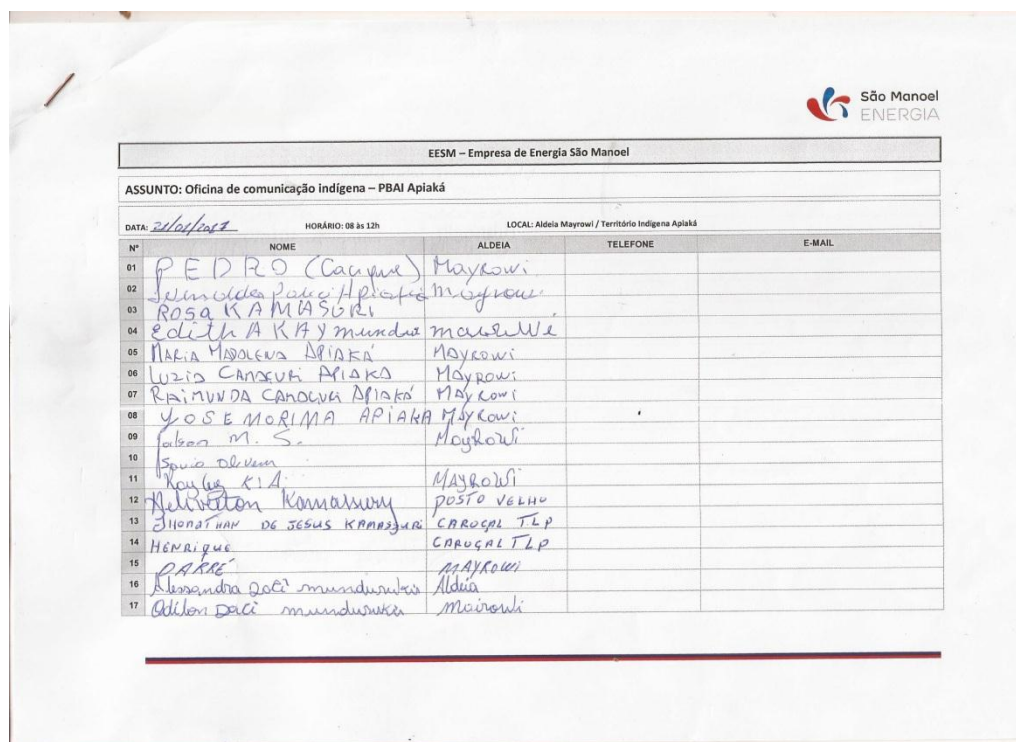 São Manoel
ENERGIA
EESM – Empresa de Energia São Manoel
ASSUNTO: Oficina de comunicação indígena – PBAI Apiaká
DATA: HORÁRIO: 08 às 12h LOCAL: Aldeia Mayrowi / Território Indígena Apiaká
Nº NOME ALDEIA TELEFONE E-MAIL
01 PEDRO (Cacique) Mayrowi
02 Mayrowi
03 ROSA KAMASURI
04 Edith AKAY mundu
05 MARIA MADALENA APIAKÁ MAYROWI
06 LUZIA APIAKA MAYROWI
07 RAIMUNDA APIAKÁ MAYROWI
08 JOSE MORIMA APIAKA MAYROWI
09 M. S. MayRoWi
10
11 MAYROWI
12 Heliverton Kamassury POSTO VELHO
13 JHONATHAN DE JESUS KAMASSURI T.L.P
14 HENRIQUE TLP
15 DARRÉ MAYROWI
16 Alessandra munduruku Aldeia
17 Odilon Daci munduruku Mairowi